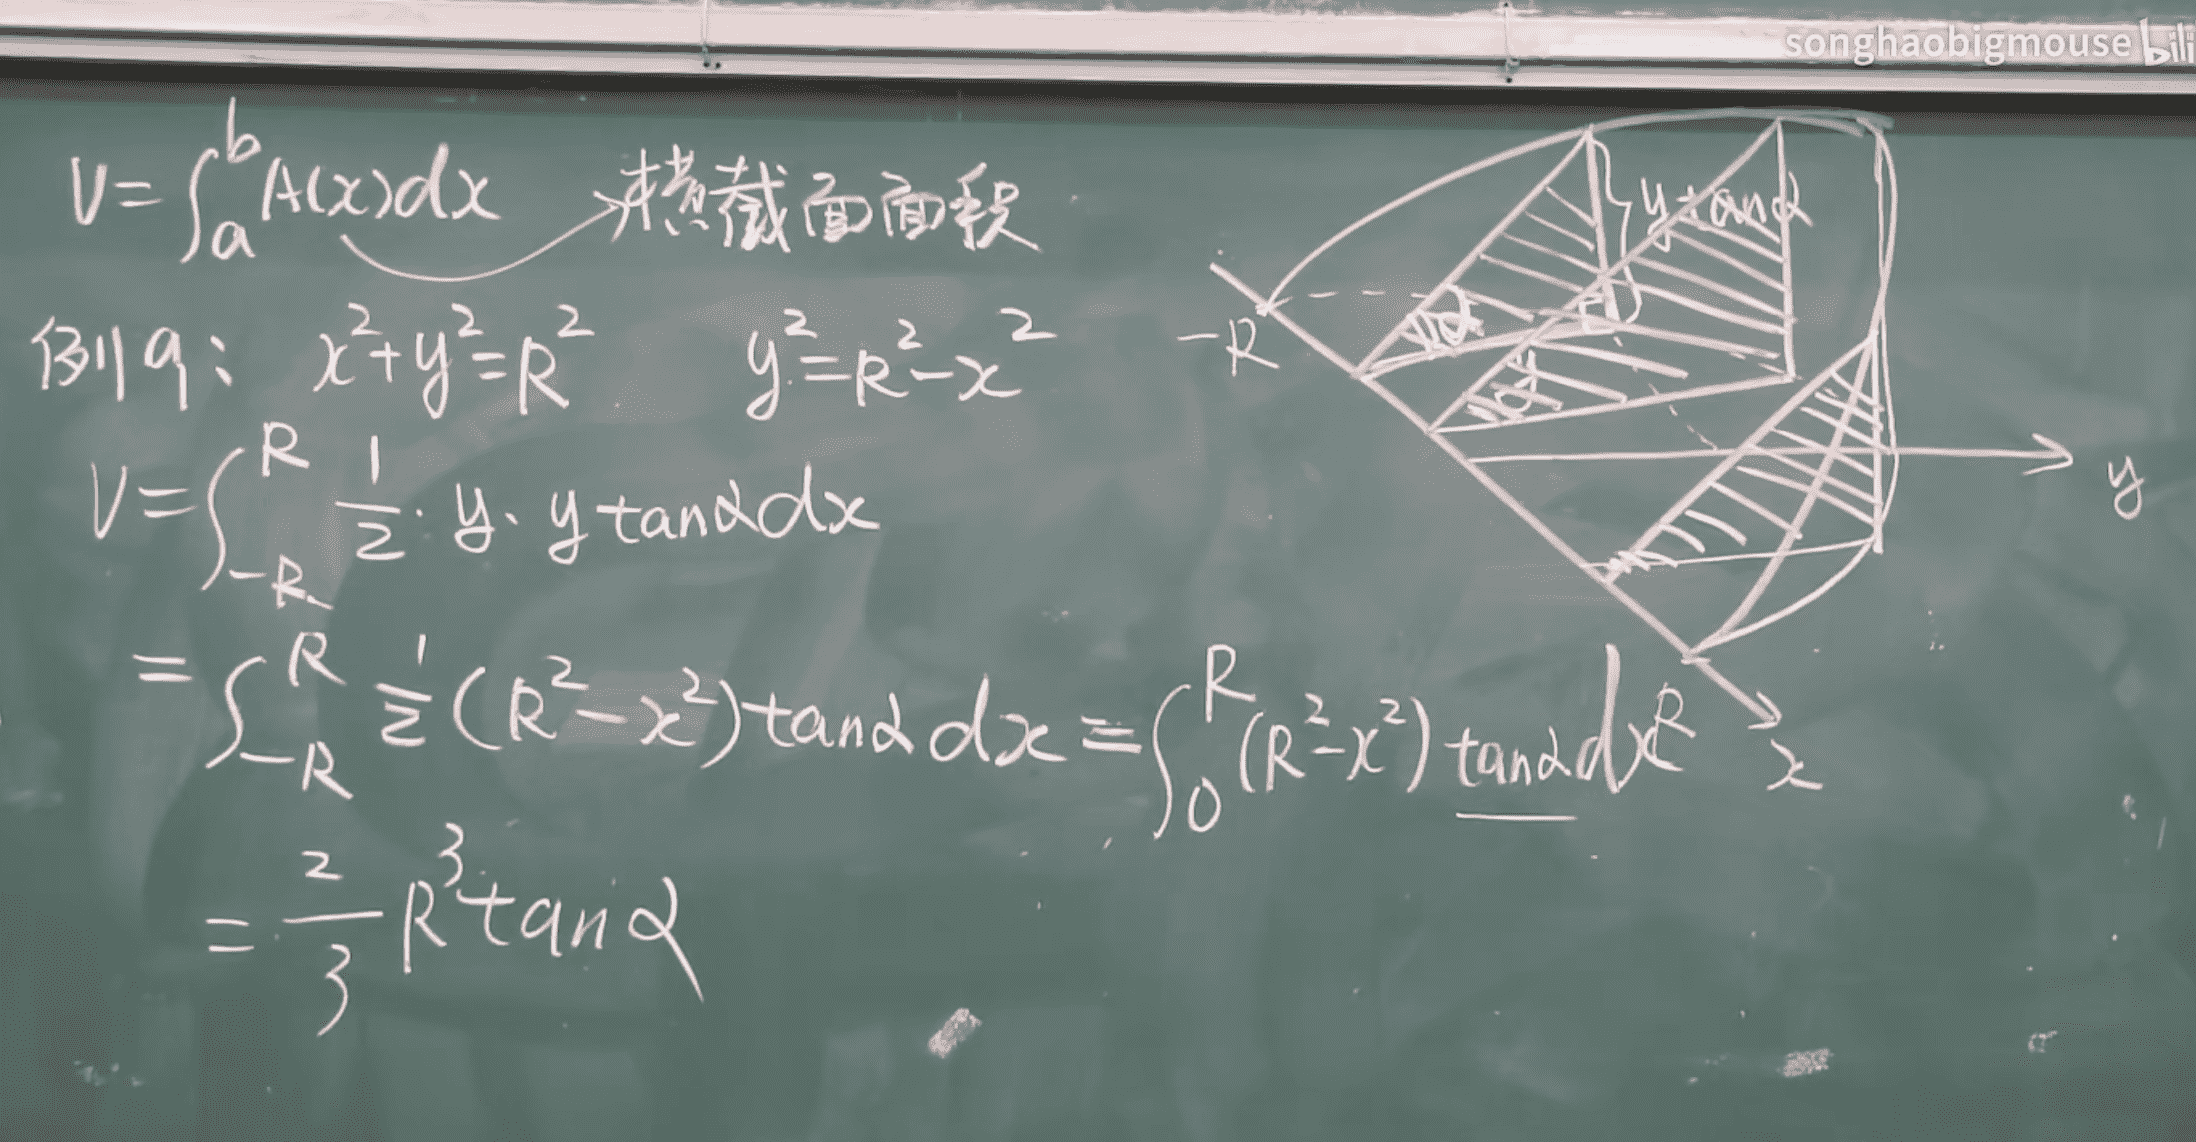 songhaobigmouse bili
V=∫_a^b A(x)dx 横截面面积
例9: x²+y²=R² y²=R²-x²
V=∫_{-R}^{R} 1/2·y·y tanα dx
=∫_{-R}^{R} 1/2(R²-x²)tanα dx=∫_0^R (R²-x²)tanα dx
=2/3 R³tanα
y tanα
α
α
-R
y
R
x